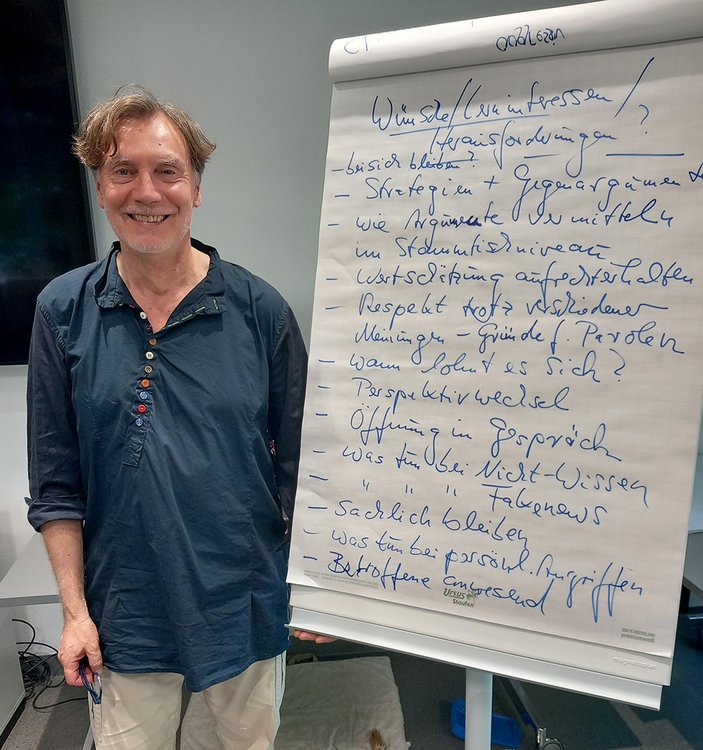 Wünsche/Lerninteressen/
Herausforderungen?
- bei sich bleiben?
- Strategien + Gegenargumente
- wie Argumente vermitteln
im Stammtischniveau
- Wertschätzung aufrechterhalten
- Respekt trotz verschiedener
Meinungen - Gründe f. Parolen
- wann lohnt es sich?
- Perspektivwechsel
- Öffnung im Gespräch
- was tun bei Nicht-Wissen
- " " " Fakenews
- Sachlich bleiben
- was tun bei persönl. Angriffen
- Betroffene anwesend
Ursus
Staufen